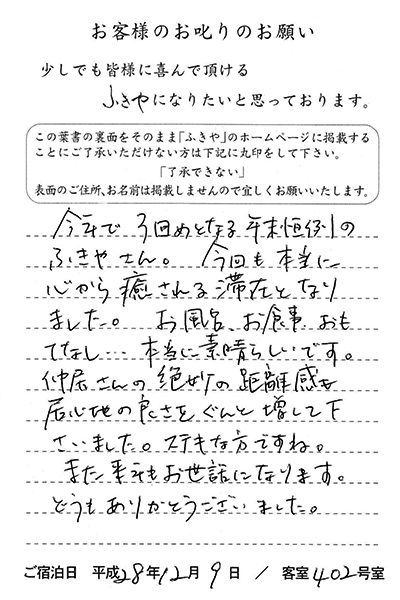 お客様のお叱りのお願い
少しでも皆様に喜んで頂ける
ふきやになりたいと思っております。
この葉書の裏面をそのまま「ふきや」のホームページに掲載する
ことにご了承いただけない方は下記に丸印をして下さい。
「了承できない」
表面のご住所、お名前は掲載しませんので宜しくお願いいたします。
今年で3回めとなる年末恒例の
ふきやさん。今回も本当に
心から癒される滞在となり
ました。お風呂、お食事、おも
てなし…本当に素晴らしいです。
仲居さんの絶妙の距離感も
居心地の良さをぐんと増して下
さいました。ステキな方ですね。
また来年もお世話になります。
どうもありがとうございました。
ご宿泊日 平成28年12月9日 / 客室402号室